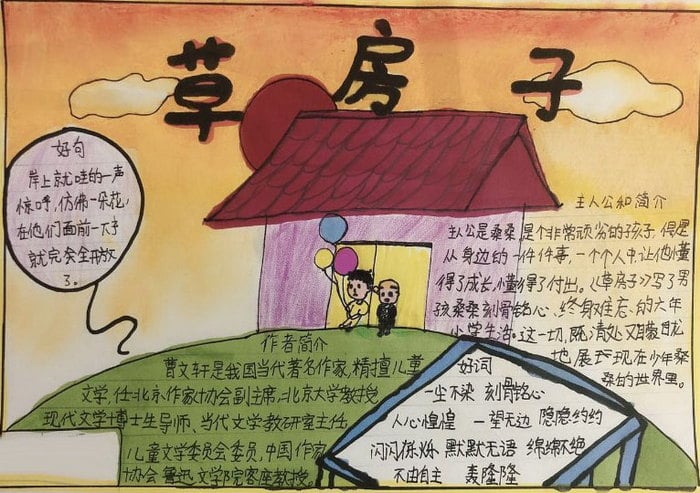 草房子
好句
岸上就哇的一声
惊呼,仿佛一朵花,
在他们面前一下子
就完全开放
了。
主人公和简介
主人公是桑桑,是个非常顽劣的孩子,但是
从身边的一件件事,一个个人中让他懂
得了成长,懂得了付出。《草房子》写了男
孩桑桑刻骨铭心,终身难忘的六年
小学生活。这一切,既清楚又朦胧
地展现在少年桑
桑的世界里。
作者简介
曹文轩是我国当代著名作家,精擅儿童
文学,任北京作家协会副主席,北京大学教授
现代文学博士生导师、当代文学教研室主任,
儿童文学委员会委员,中国作家
协会鲁迅文学院客座教授。
好词
一尘不染 刻骨铭心
人心惶惶 一望无边 隐隐约约
闪闪烁烁 默默无语 绵绵不绝
不由自主 轰隆隆